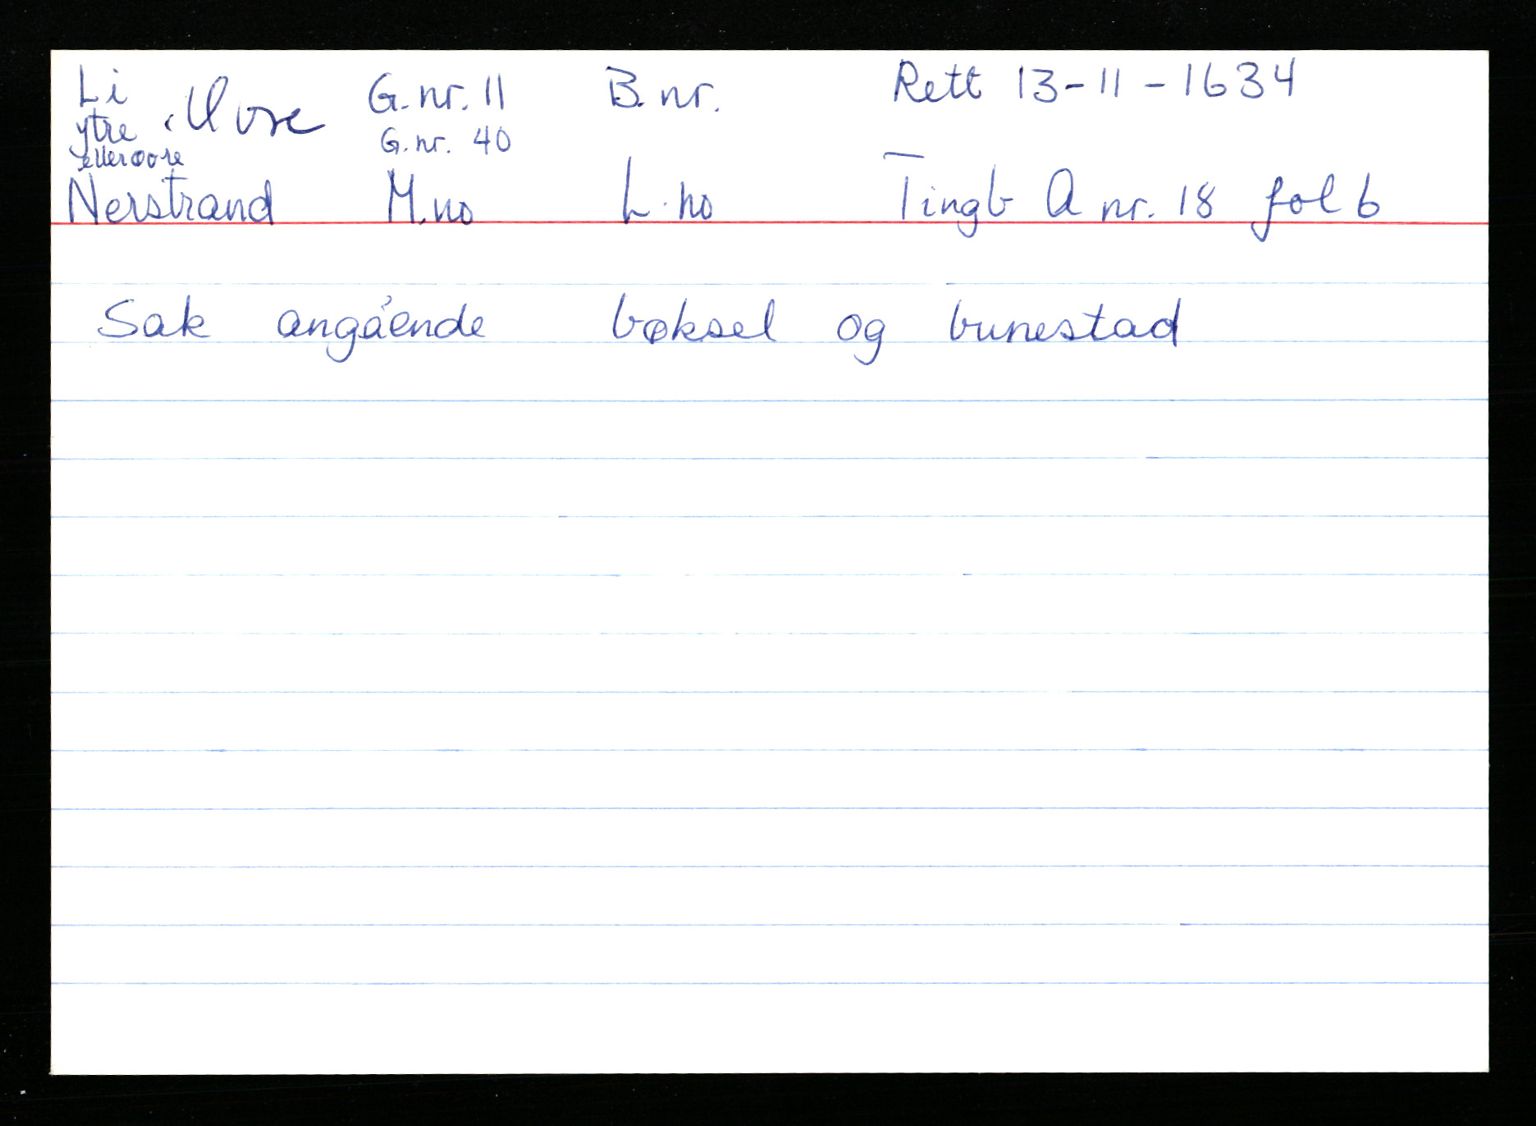 Li
ytre
G.nr. 11 B.nr. Rett 13-11-1634
G.nr. 40
Nerstrand M.no L.no Tingb A nr. 18 fol 6
Sak angående bøksel og bunestad